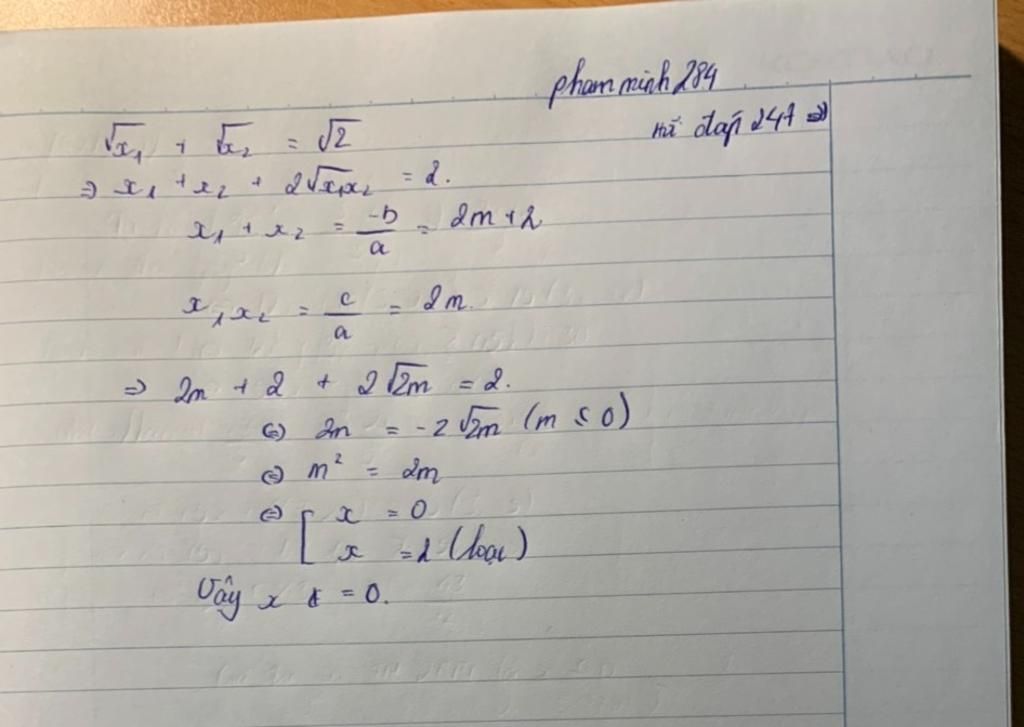 phamminh284
Hỏi đáp 247 ⇒
√x₁ + √x₂ = √2
⇒ x₁ + x₂ + 2√x₁x₂ = 2.
x₁ + x₂ = -b/a = 2m + 2
x₁x₂ = c/a = 2m.
⇒ 2m + 2 + 2√2m = 2.
⇔ 2m = -2√2m (m ≤ 0)
⇔ m² = 2m
⇔ [ x = 0
x = 2 (loại)
Vậy x = 0.